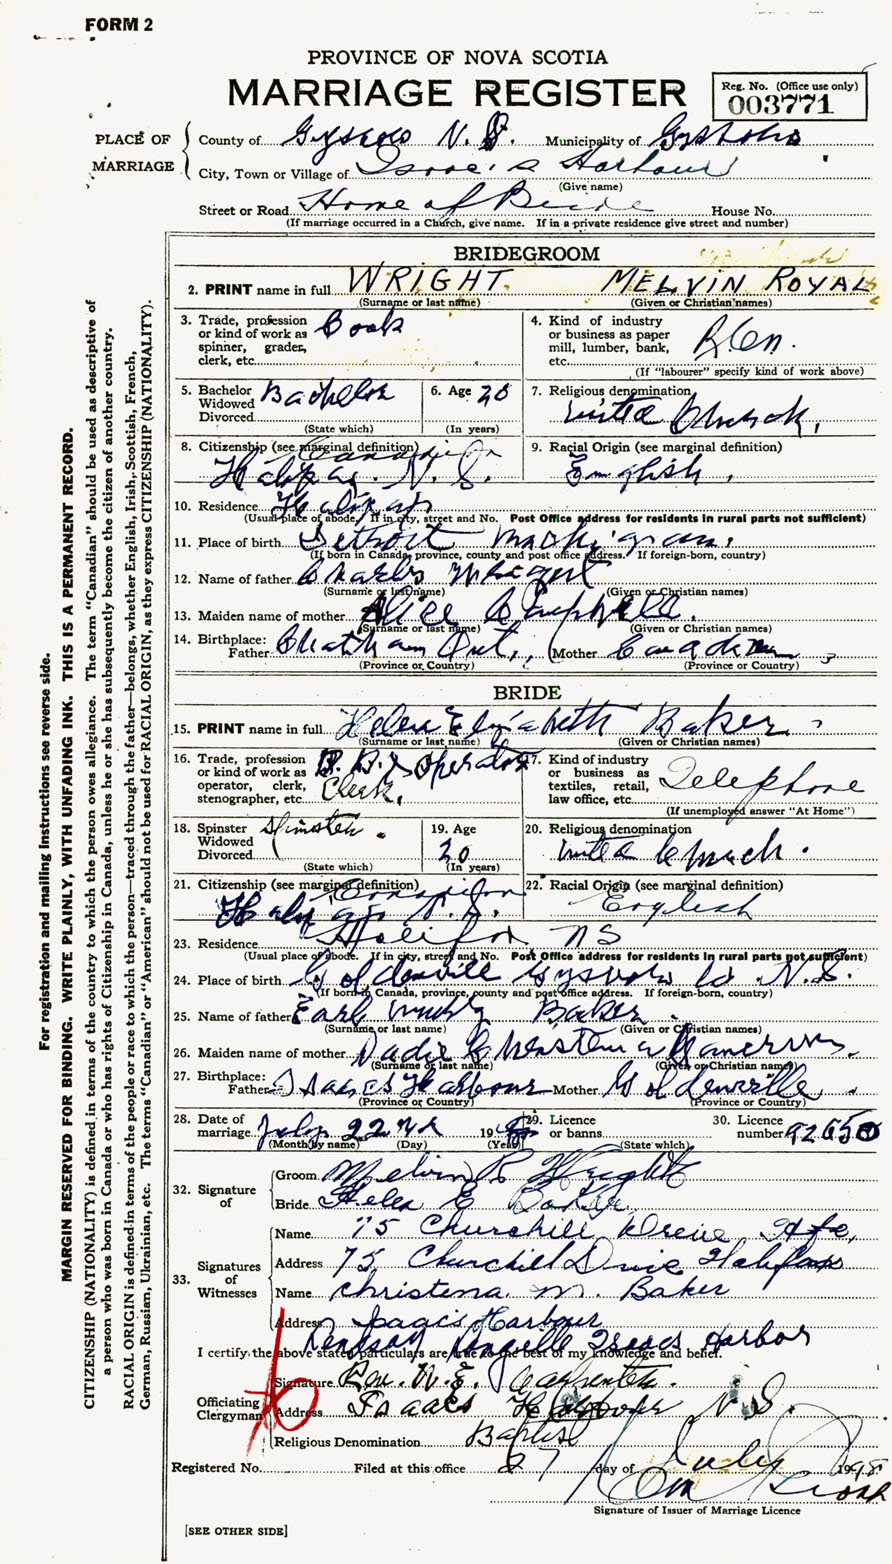 FORM 2
PROVINCE OF NOVA SCOTIA
MARRIAGE REGISTER
Reg. No. (Office use only)
003771
PLACE OF MARRIAGE
County of Guysboro N.S. Municipality of Guysboro
City, Town or Village of Isaac's Harbour
(Give name)
Street or Road Home of Bride House No.
(If marriage occurred in a Church, give name. If in a private residence give street and number)
BRIDEGROOM
2. PRINT name in full WRIGHT. MELVIN ROYAL
(Surname or last name) (Given or Christian names)
3. Trade, profession or kind of work as spinner, grader, clerk, etc. Cook
4. Kind of industry or business as paper mill, lumber, bank, etc.
(If "labourer" specify kind of work above)
5. Bachelor Widowed Divorced Bachelor
(State which)
6. Age 20
(In years)
7. Religious denomination United Church.
8. Citizenship (see marginal definition) Canadian
Halifax. N.S.
9. Racial Origin (see marginal definition)
English.
10. Residence Halifax
(Usual place of abode. If in city, street and No. Post Office address for residents in rural parts not sufficient)
11. Place of birth Detroit Machigram.
(If born in Canada, province, county and post office address. If foreign-born, country)
12. Name of father Charles Wright
(Surname or last name) (Given or Christian names)
13. Maiden name of mother Alice
(Surname or last name) (Given or Christian names)
14. Birthplace: Father Chatham Ont., Mother Canadian
(Province or Country) (Province or Country)
BRIDE
15. PRINT name in full Helen Elizabeth Baker.
(Surname or last name) (Given or Christian names)
16. Trade, profession or kind of work as operator, clerk, stenographer, etc. Operator
Clerk.
17. Kind of industry or business as textiles, retail, law office, etc. Telephone
(If unemployed answer "At Home")
18. Spinster Widowed Divorced Spinster.
(State which)
19. Age 20
(In years)
20. Religious denomination
United Church.
21. Citizenship (see marginal definition) Canadian
Halifax N.S.
22. Racial Origin (see marginal definition)
English
23. Residence Halifax NS
(Usual place of abode. If in city, street and No. Post Office address for residents in rural parts not sufficient)
24. Place of birth Goldenville Guysboro Co. N.S.
(If born in Canada, province, county and post office address. If foreign-born, country)
25. Name of father Earl Baker.
(Surname or last name) (Given or Christian names)
26. Maiden name of mother Christena
(Surname or last name) (Given or Christian names)
27. Birthplace: Father Isaacs Harbour Mother Goldenville.
(Province or Country) (Province or Country)
28. Date of marriage July 22nd 19
(Month by name) (Day) (Year)
29. Licence or banns
(State which)
30. Licence number 92650
32. Signature of
Groom Melvin R Wright
Bride Helen E Baker
33. Signatures of Witnesses
Name 75 Churchill Drive Hfx,
Address 75 Churchill Drive Halifax
Name Christena M. Baker
Address Isaac's Harbour
Isaacs Harbor
I certify the above stated particulars are true to the best of my knowledge and belief.
Officiating Clergyman
Signature Rev. W. E. Carpenter.
Address Isaacs Harbour N.S.
Religious Denomination Baptist
Registered No. Filed at this office 27 day of July 1948
Signature of Issuer of Marriage Licence
[SEE OTHER SIDE]
For registration and mailing instructions see reverse side.
MARGIN RESERVED FOR BINDING. WRITE PLAINLY, WITH UNFADING INK. THIS IS A PERMANENT RECORD.
CITIZENSHIP (NATIONALITY) is defined in terms of the country to which the person owes allegiance. The term "Canadian" should be used as descriptive of
a person who was born in Canada or who has rights of Citizenship in Canada, unless he or she has subsequently become the citizen of another country.
RACIAL ORIGIN is defined in terms of the people or race to which the person—traced through the father—belongs, whether English, Irish, Scottish, French,
German, Russian, Ukrainian, etc. The terms "Canadian" or "American" should not be used for RACIAL ORIGIN, as they express CITIZENSHIP (NATIONALITY).